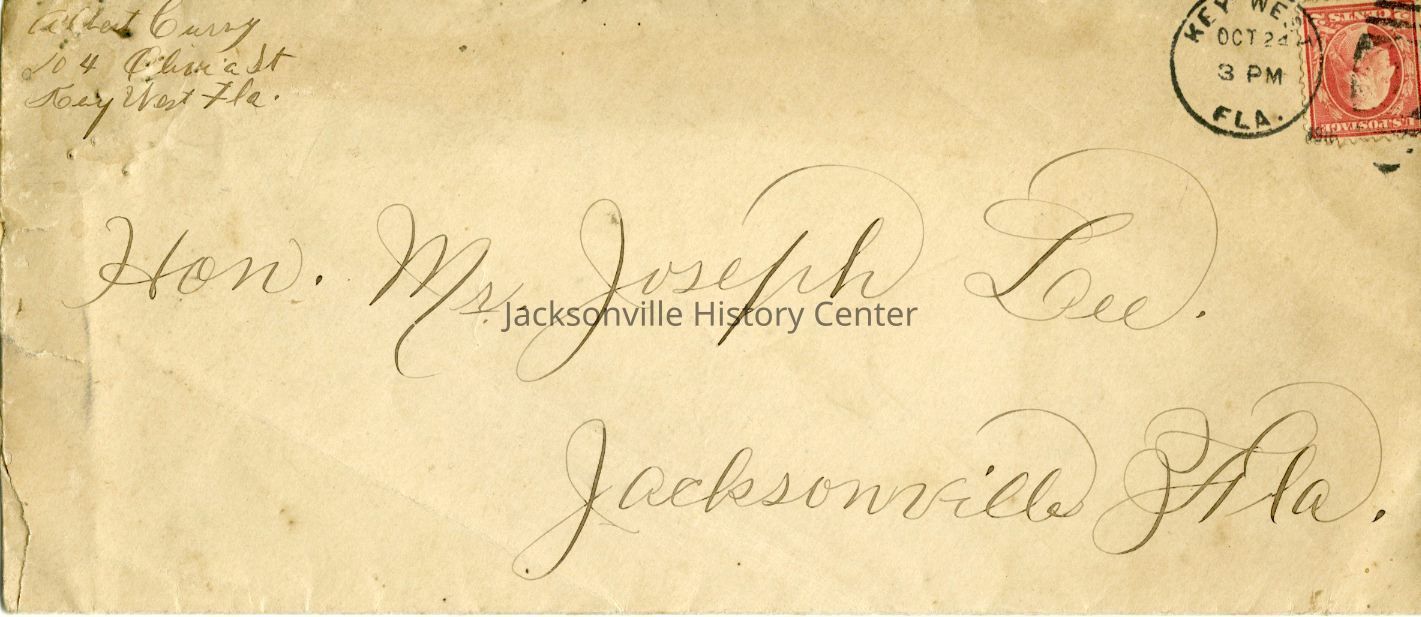 Albert Curry
204 Olivia St
Key West Fla.
KEY WEST
OCT 24
3 PM
FLA.
2 CENTS 2
U.S. POSTAGE
Hon. Mr. Joseph Lee.
Jacksonville History Center
Jacksonville Fla.